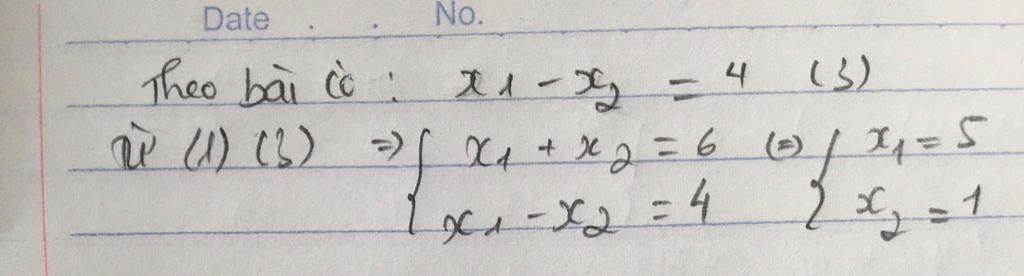 Date . . No.
Theo bài có : x1 - x2 = 4 (3)
Từ (1) (3) => { x1 + x2 = 6 (=) { x1 = 5
x1 - x2 = 4 x2 = 1